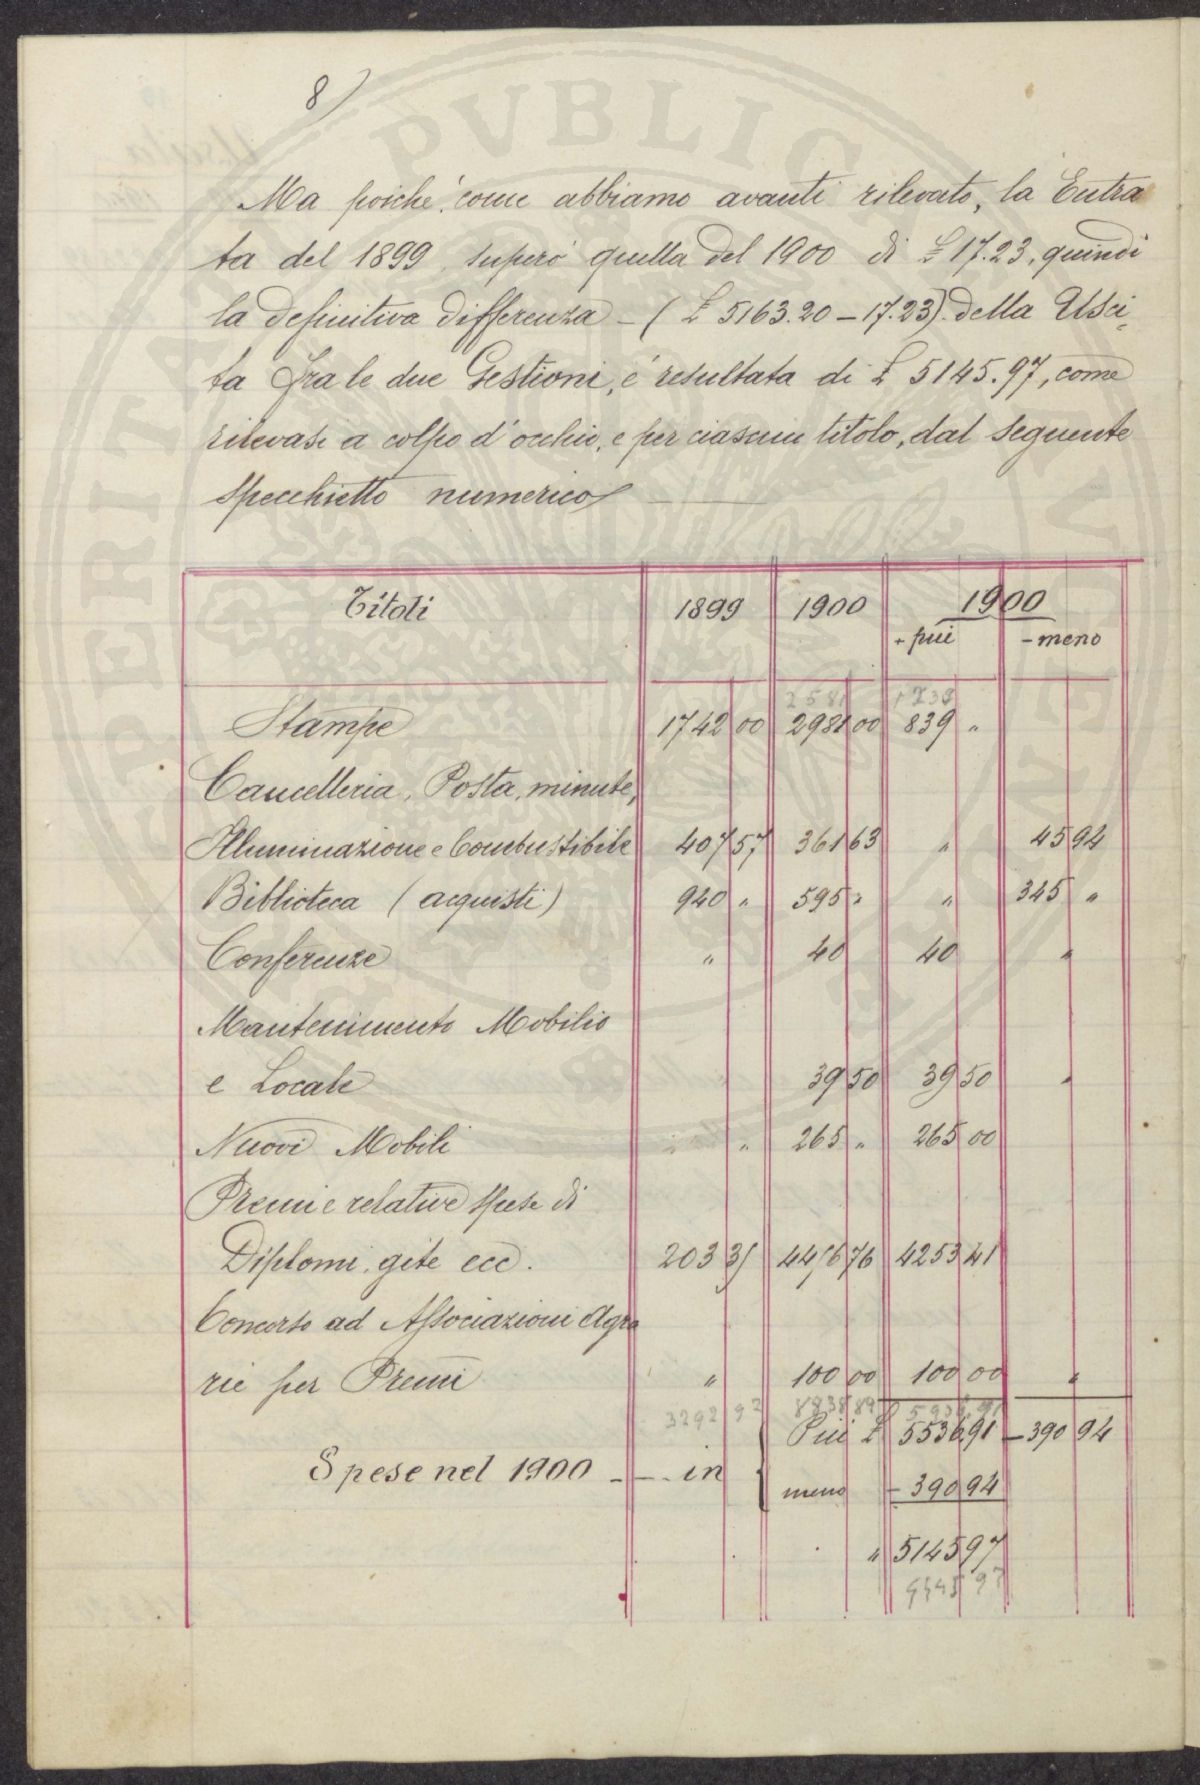 8)
Ma poiché, come abbiamo avanti rilevato, la Entra
ta del 1899 superò quella del 1900 di £ 17.23, quindi
la definitiva differenza - (£ 5163.20 - 17.23) della Usci=
ta fra le due Gestioni, é resultata di £ 5145.97, come
rilevasi a colpo d'occhio, e per ciascun titolo, dal seguente
specchietto numerico
Titoli 1899 1900 1900
+ più - meno
2581 1239
Stampe 1742 00 2981 00 839 "
Cancelleria, Posta, minute,
Illuminazione e Combustibile 407 57 361 63 " 45 94
Biblioteca (acquisti) 940 " 595 " " 345 "
Conferenze " 40 40 "
Mantenimento Mobilio
e Locale 39 50 39 50 "
Nuovi Mobili " 265 " 265 00
Premi e relative spese di
Diplomi, gite ecc. 203 35 4456 76 4253 41
Concorso ad Associazioni Agra
rie per Premi " 100 00 100 00 "
3292 92 8838 89 5936 91
Più £ 5536 91 - 390 94
Spese nel 1900 - - in
meno - 390 94
" 5145 97
5545 97
PERITAT PVBLIC